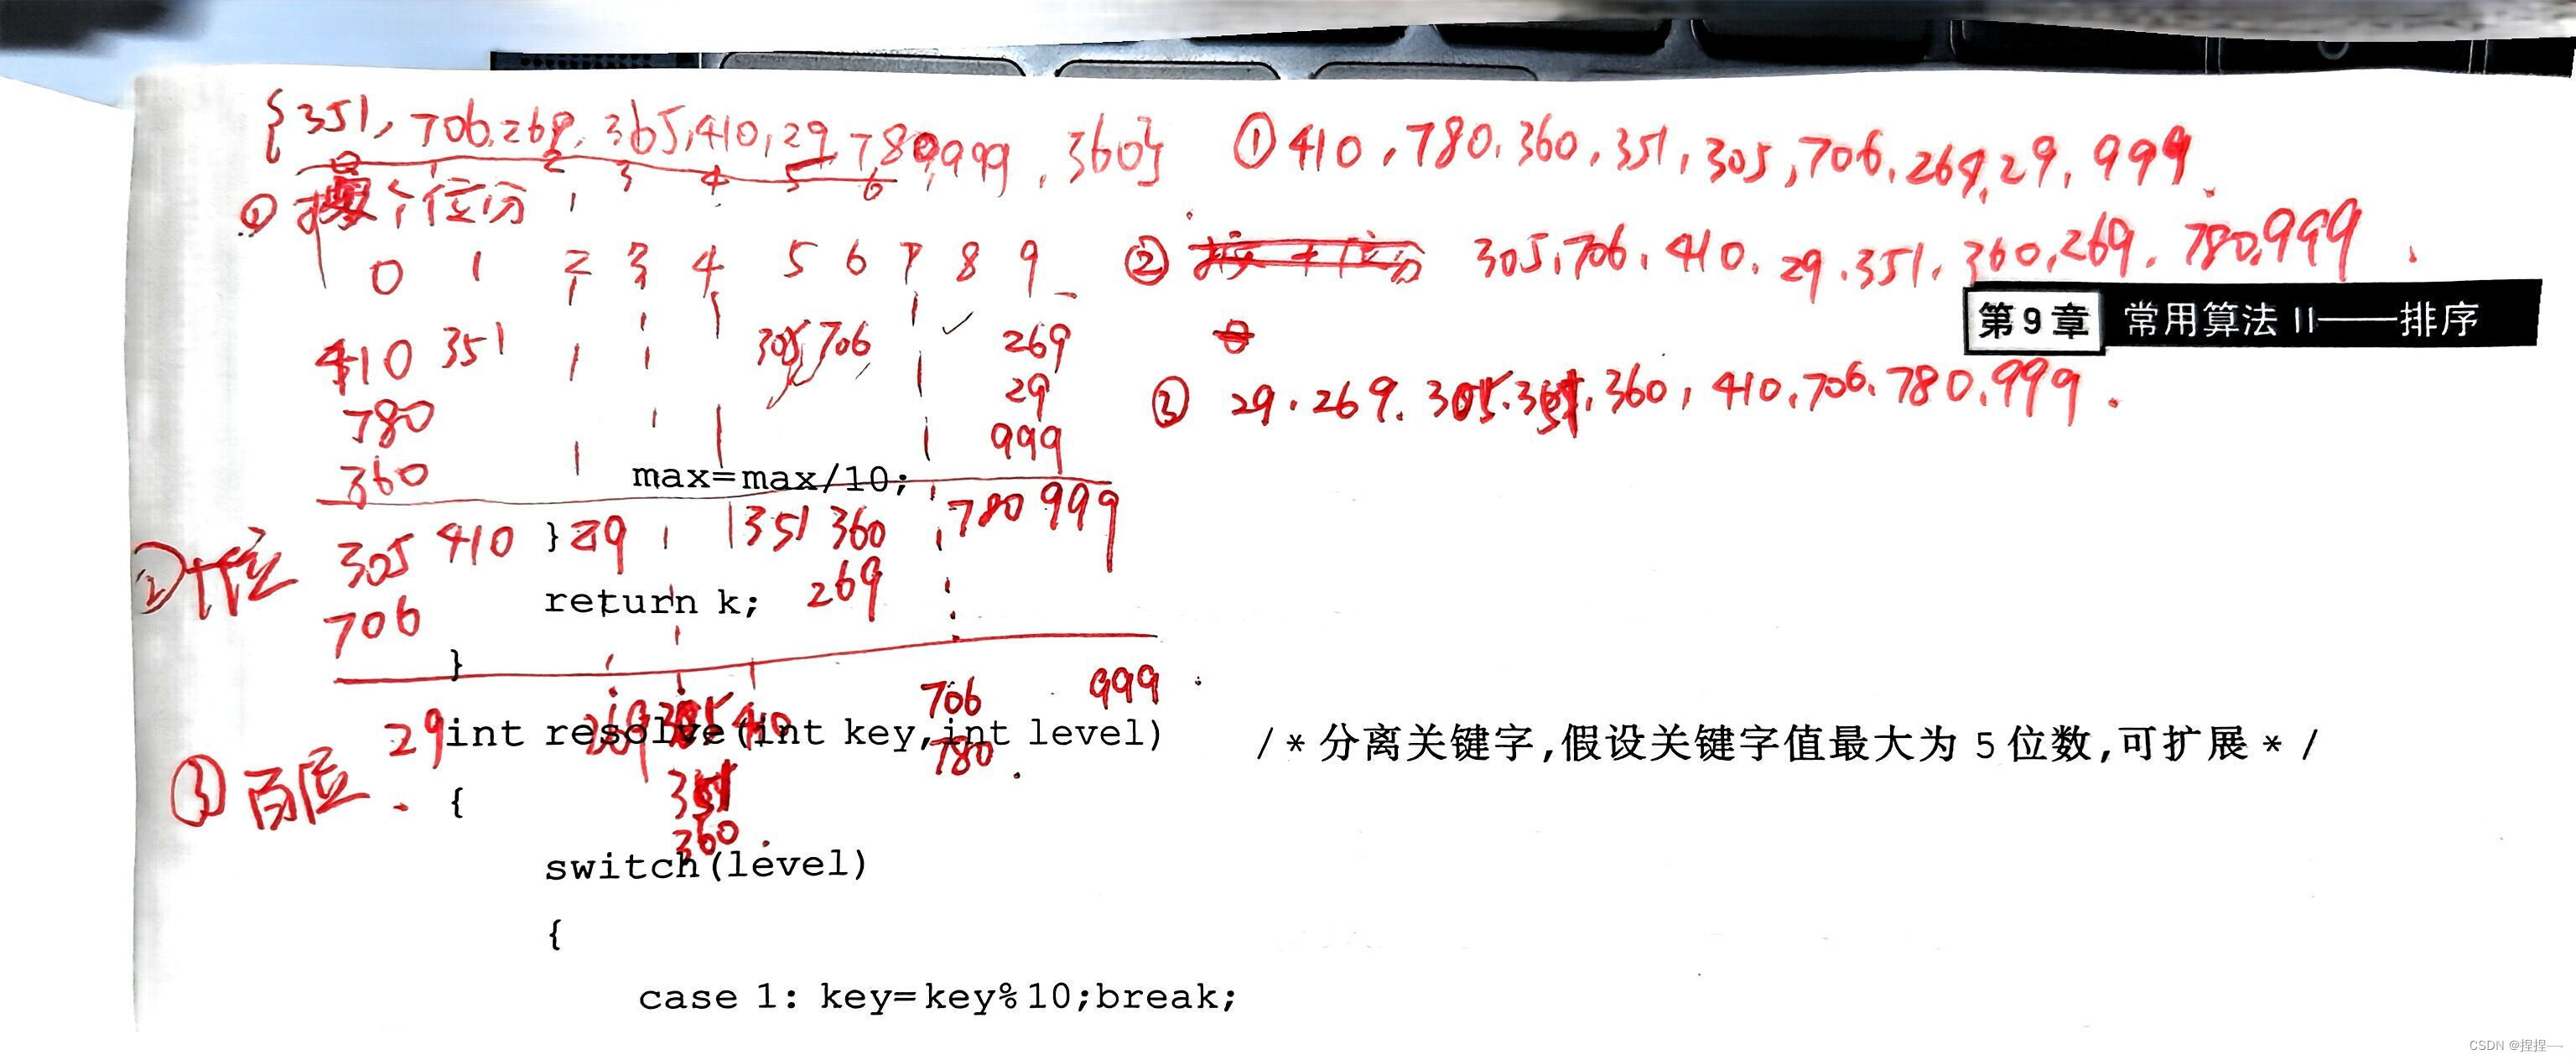 {351, 706, 269, 365, 410, 29, 780, 999, 360}
0 1 2 3 4 5 6
① 按个位分
0 1 2 3 4 5 6 7 8 9
410 351 305 706 269
780 29
360 999
② 十位 305 410 29 351 360 780 999
706 269
③ 百位. 29 269 305 410 706 999
351 780
360
① 410, 780, 360, 351, 305, 706, 269, 29, 999.
② 305, 706, 410, 29, 351, 360, 269, 780, 999.
③ 29, 269, 305, 351, 360, 410, 706, 780, 999.
第9章 常用算法 II——排序
max=max/10;
}
return k;
}
int resolve(int key,int level) /*分离关键字,假设关键字值最大为5位数,可扩展*/
{
switch(level)
{
case 1: key=key%10;break;
CSDN @捏捏—